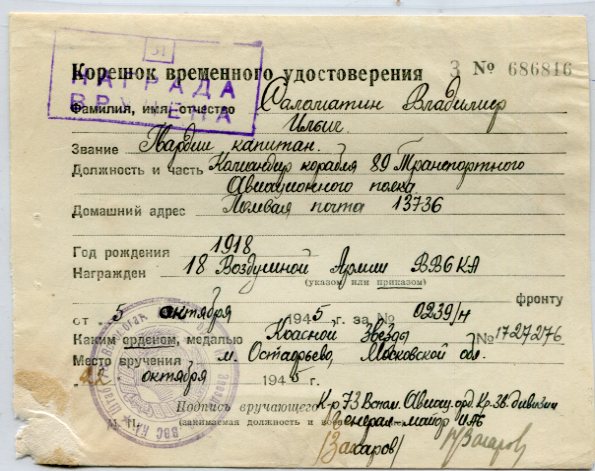 31
НАГРАДА
ВРУЧЕНА
Корешок временного удостоверения З № 686816
Фамилия, имя, отчество Саломатин Владимир
Ильич.
Звание Гвардии капитан.
Должность и часть Командир корабля 89 Транспортного
Авиационного полка
Домашний адрес Полевая почта 13736
Год рождения 1918
Награжден 18 Воздушной Армии ВВС КА
(указом или приказом)
фронту
от 5 октября 1945 г. за № 0239/н
Каким орденом, медалью Красной Звезды № 1727276
Место вручения м. Остафьево, Московской обл.
октября 1945 г.
Подпись вручающего К-р 73 Вспом. Авиац. орд. Кр. Зв. дивизии
М. П. (занимаемая должность и Генерал-майор
/Захаров/ Захаров